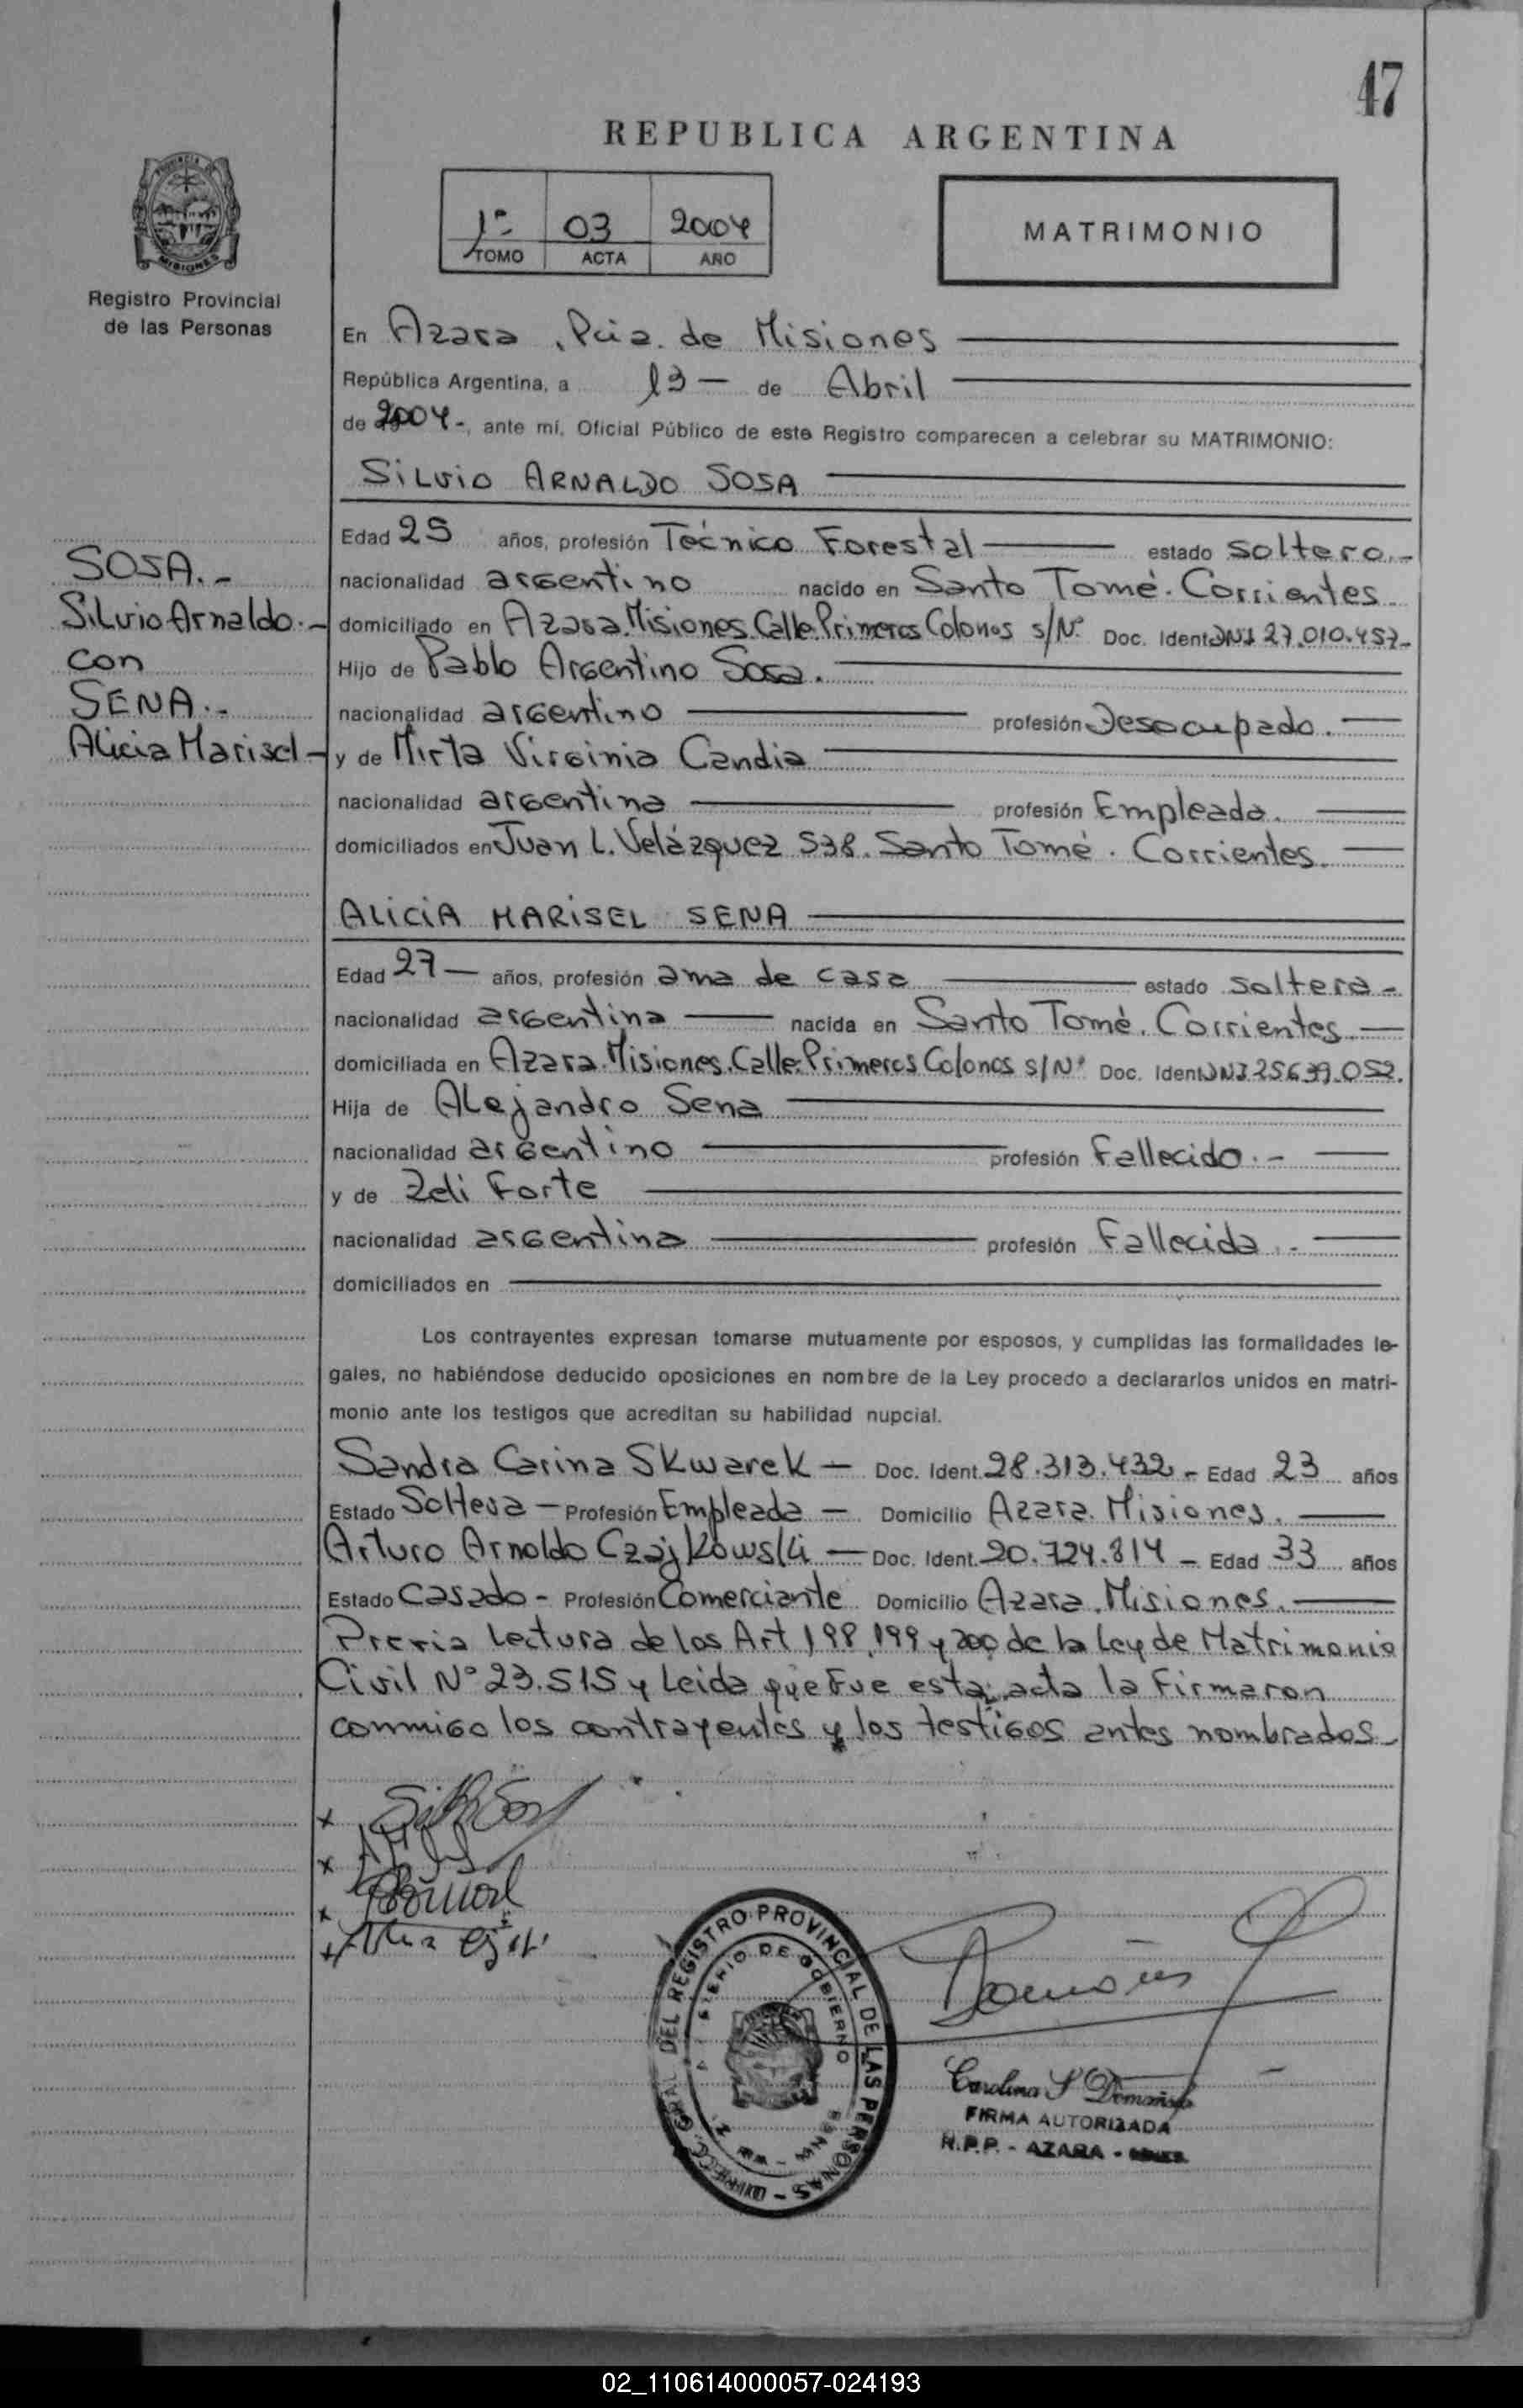 47
REPUBLICA ARGENTINA
1º- 03 2004
TOMO ACTA AÑO
MATRIMONIO
Registro Provincial
de las Personas
En Azara, Pcia. de Misiones
República Argentina, a 13 — de Abril
de 2004-, ante mí, Oficial Público de este Registro comparecen a celebrar su MATRIMONIO:
SILVIO ARNALDO SOSA
Edad 25 años, profesión Técnico Forestal estado soltero.-
nacionalidad argentino nacido en Santo Tomé. Corrientes
domiciliado en Azara. Misiones. Calle Primeros Colonos s/Nº Doc. Ident DNI 27.010.457-
Hijo de Pablo Argentino Sosa.
nacionalidad argentino profesión Desocupado.
y de Mirta Virginia Candia
nacionalidad argentina profesión Empleada.
domiciliados en Juan L. Velázquez 538. Santo Tomé. Corrientes.
SOSA.-
Silvio Arnaldo.-
con
SENA.-
Alicia Marisel-
ALICIA MARISEL SENA
Edad 27 — años, profesión ama de casa estado soltera-
nacionalidad argentina nacida en Santo Tomé. Corrientes.
domiciliada en Azara. Misiones. Calle Primeros Colonos s/Nº Doc. Ident DNI 25.639.052.
Hija de Alejandro Sena
nacionalidad argentino profesión Fallecido.-
y de Zeli Forte
nacionalidad argentina profesión Fallecida.-
domiciliados en
Los contrayentes expresan tomarse mutuamente por esposos, y cumplidas las formalidades le-
gales, no habiéndose deducido oposiciones en nombre de la Ley procedo a declararlos unidos en matri-
monio ante los testigos que acreditan su habilidad nupcial.
Sandra Carina Skwarek — Doc. Ident. 28.313.432 - Edad 23 años
Estado Soltera - Profesión Empleada — Domicilio Azara. Misiones.
Arturo Arnoldo Czajkowski — Doc. Ident. 20.724.814 - Edad 33 años
Estado Casado - Profesión Comerciante Domicilio Azara. Misiones.
Previa lectura de los Art 198, 199 y 200 de la Ley de Matrimonio
Civil Nº 23.515 y leida que fue esta acta la firmaron
conmigo los contrayentes y los testigos antes nombrados-
DEL REGISTRO PROVINCIAL DE LAS PERSONAS
DE GOBIERNO
Carolina S
FIRMA AUTORIZADA
R.P.P. - AZARA -
02_110614000057-024193